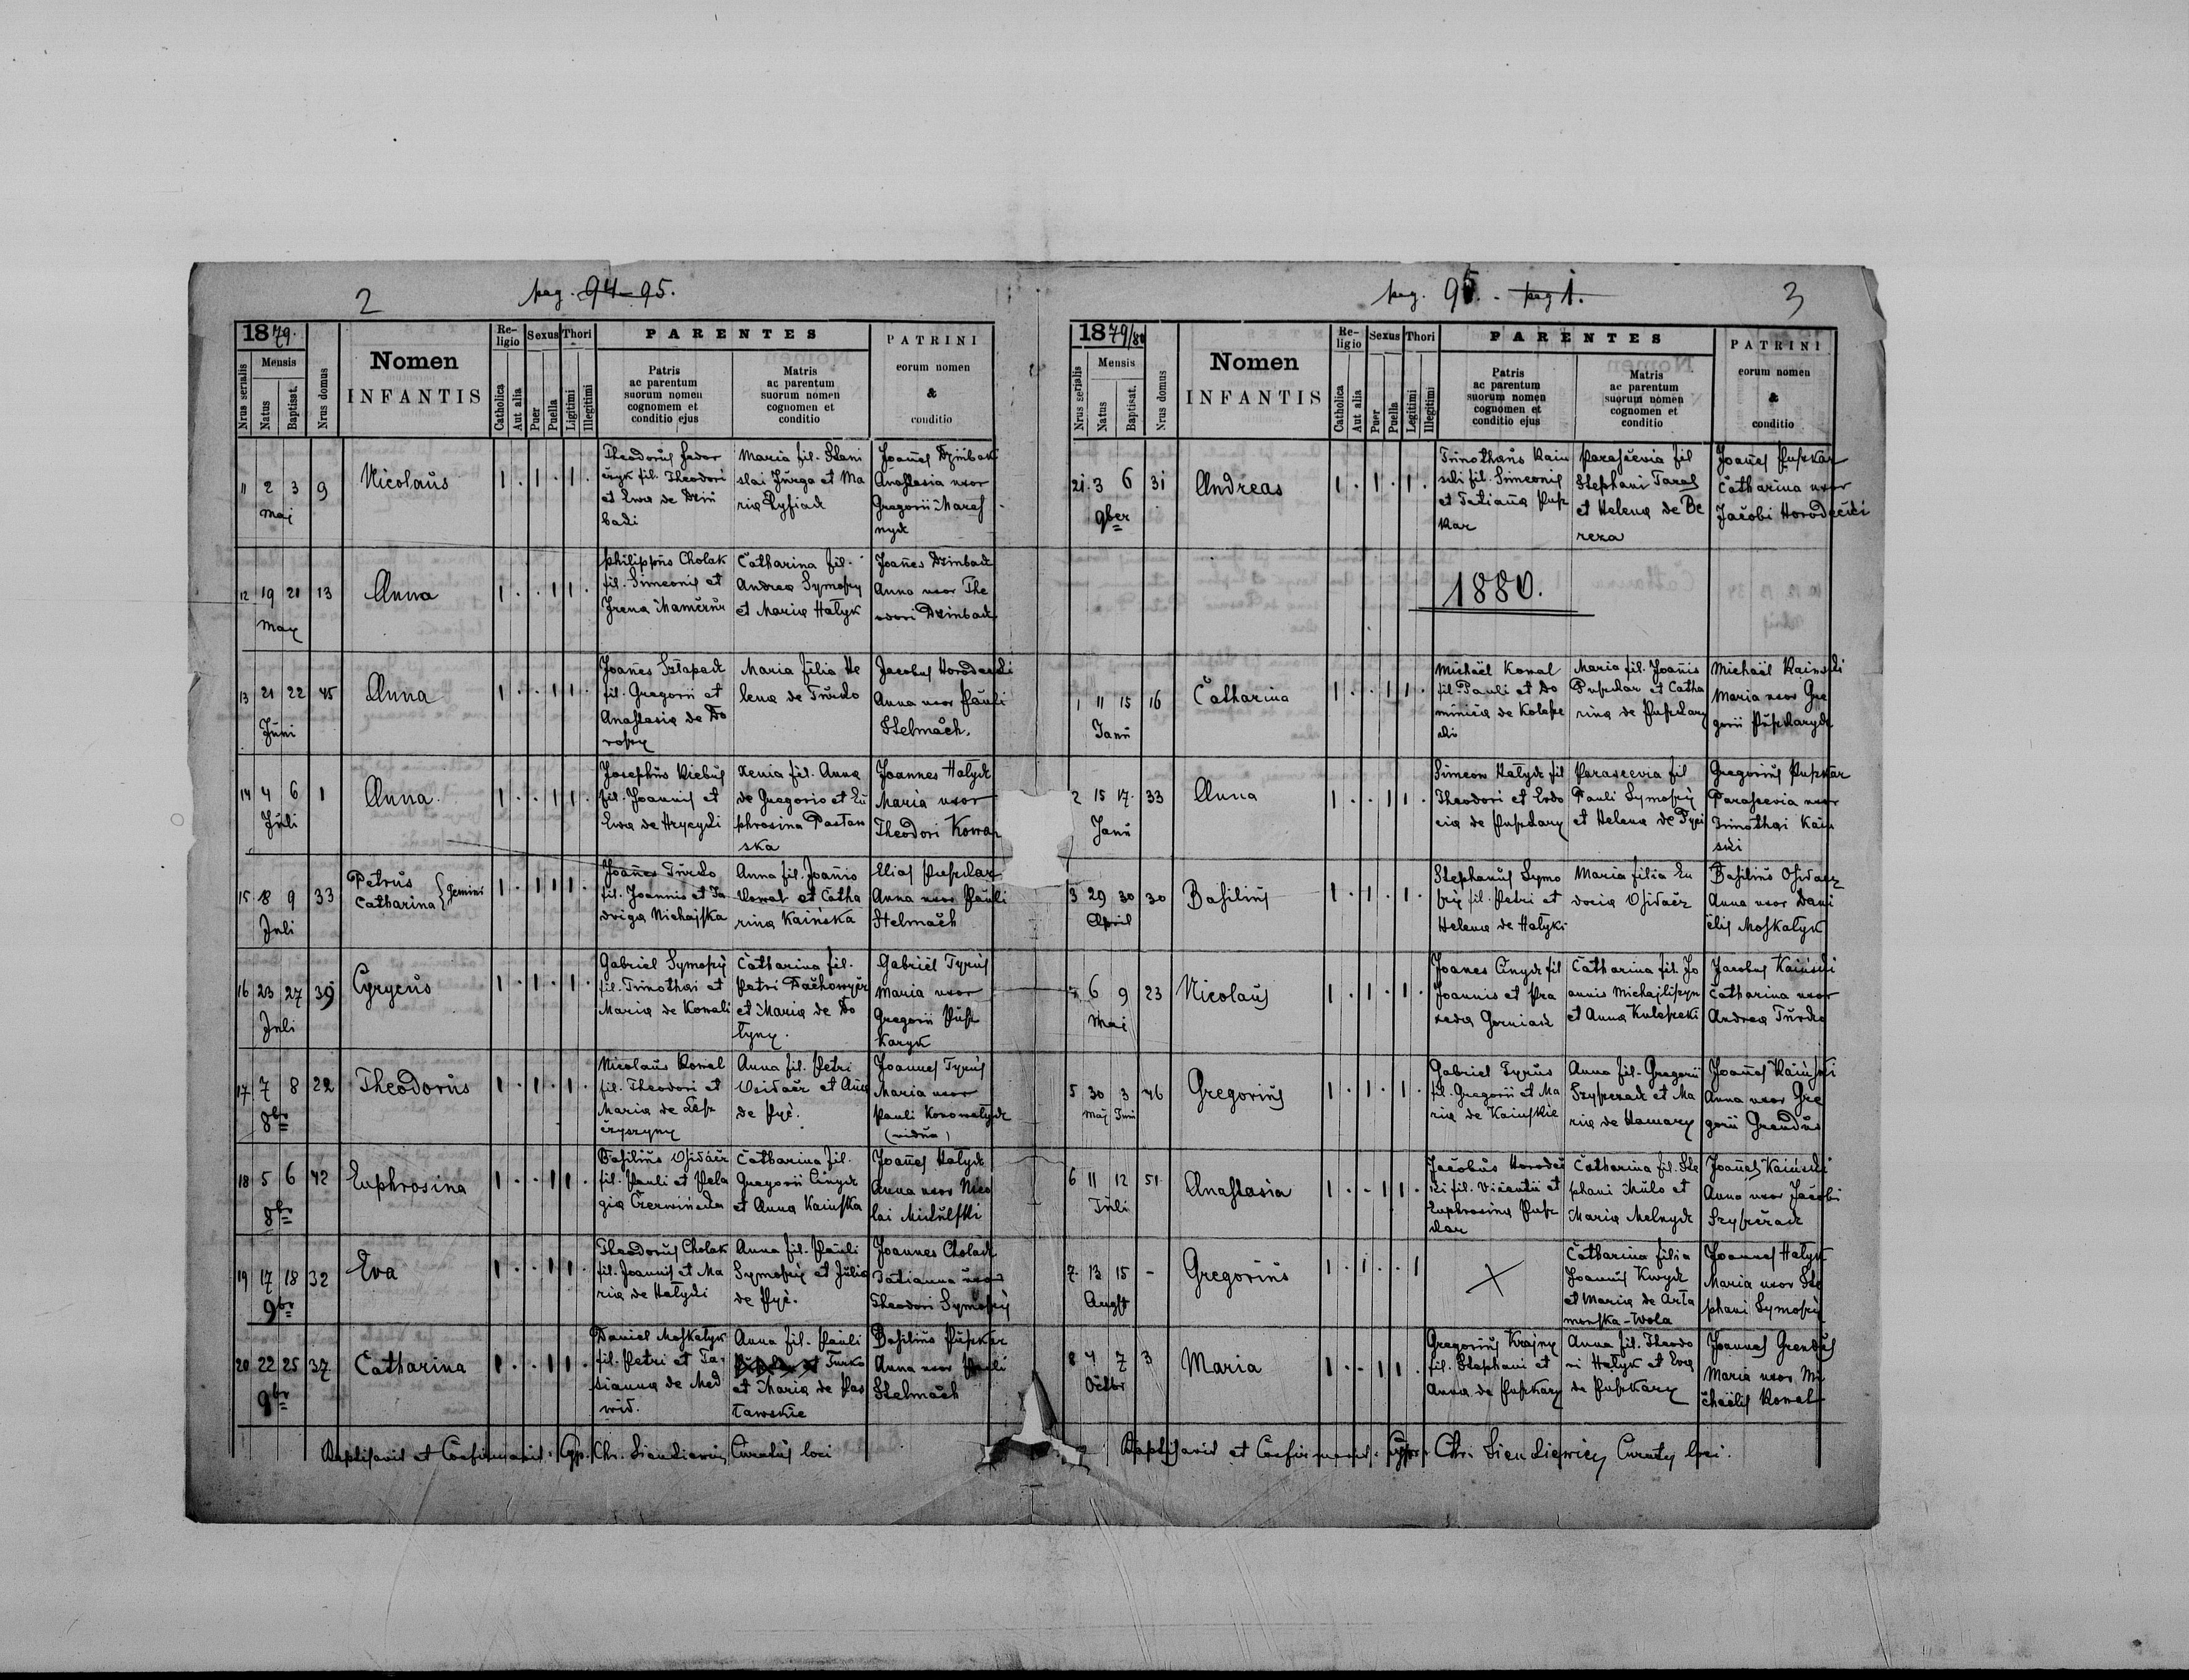 2
pag. 94-95.
1879.
Nrus serialis
Mensis
Natus
Baptisat.
Nrus domus
Nomen
INFANTIS
Re-
ligio
Catholica
Aut alia
Sexus
Puer
Puella
Thori
Ligitimi
Illegitimi
PARENTES
Patris
ac parentum
suorum nomen
cognomem et
conditio ejus
Matris
ac parentum
suorum nomen
cognomen et
conditio
PATRINI
eorum nomen
&
conditio
11 2 3 9 Nicolaus 1 . 1 . 1 .
Maj
Theodorus Fedor
czyk fil. Theodori
et Ewa de Dzin
badi
Maria fil. Stani
slai Jurga et Ma
ria Lysiak
Joanes Dzinbak
Anastasia uxor
Gregorii Maras
nyk
12 19 21 13 Anna 1 . . 1 1 .
May
Philippus Cholak
fil. Simeonis et
Irena Mamczur
Catharina fil.
Andrea Symofry
et Maria Hałyk
Joanes Dzinbak
Anna uxor The
odori Dzinbak
13 21 22 45 Anna 1 . . 1 1 .
Juni
Joanes Szłapak
fil. Gregorii et
Anastasia de Do
roszy
Maria filia He
lena de Turko
Jacobus Horodecki
Anna uxor Pauli
Stelmach.
14 4 6 1 Anna 1 . . 1 1 .
Juli
Josephus Kiebus
fil. Joannis et
Ewa de Hrycyki
Xenia fil. Anna
de Gregorio et Eu
phrosina Pastan
ska
Joannes Hałyk
Maria uxor
Theodori Kowa
15 8 9 33 Petrus
Catharina } Gemini 1 . 1 1 1 .
Juli
Joanes Turko
fil. Joannis et Ja
dviga Michajska
Anna fil. Joanis
Kowal et Catha
rina Kainska
Elias Puszkar
Anna uxor Pauli
Stelmach
16 23 27 39 Cyrycus 1 . 1 . 1 .
Juli
Gabriel Symofry
fil. Timothai et
Maria de Kowali
Catharina fil.
Petri Dachowycz
et Maria de Do
łyny.
Gabriel Tyrus
Maria uxor
Gregorii Pusz
karyk
17 7 8 22 Theodorus 1 . 1 . 1 .
8br
Nicolaus Kowal
fil. Theodori et
Maria de Lesz
czyszyny
Anna fil. Petri
Osidacz et Anna
de Pyc.
Joannes Tyrus
Maria uxor
Pauli Konowałyk
(vidua)
18 5 6 42 Euphrosina 1 . . 1 1 .
8br
Basilius Osidacz
fil. Pauli et Pela
gia Czerwinska
Catharina fil.
Gregorii Cinyk
et Anna Kainska
Joanes Hałyk
Anna uxor Nico
lai Mikulski
19 17 18 32 Eva 1 . . 1 1 .
9br
Theodorus Cholak
fil. Joannis et Ma
ria de Hałyki
Anna fil. Pauli
Symofry et Julia
de Pyc.
Joannes Cholak
Tatianna uxor
Theodori Symofry
20 22 25 37 Catharina 1 . . 1 1 .
9br
Daniel Moskałyk
fil. Petri et Ta-
tianna de Med
wid.
Anna fil. Pauli
Turko
et Maria de Pas
ławskie
Basilius Puszkar
Anna uxor Pauli
Stelmach
Baptisavit et Confirmavit: Cyp. Chr. Sienkiewicz Curatus loci
pag. 95. - pag 1.
3
1879/80
Nrus serialis
Mensis
Natus
Baptisat.
Nrus domus
Nomen
INFANTIS
Re-
ligio
Catholica
Aut alia
Sexus
Puer
Puella
Thori
Legitimi
Illegitimi
PARENTES
Patris
ac parentum
suorum nomen
cognomen et
conditio ejus
Matris
ac parentum
suorum nomen
cognomen et
conditio
PATRINI
eorum nomen
&
conditio
21. 3 6 31 Andreas 1 . 1 . 1 .
9ber
Timothaus Kain
ski fil. Simeonis
et Tatiana Pusz
kar
Parascevia fil
Stephani Taras
et Helena de Be
reza
Joanes Puszkar
Catharina uxor
Jacobi Horodecki
1880.
1 11 15 16 Catharina 1 . . 1 1 .
Janu
Michaël Kowal
fil. Pauli et Do
minica de Kolasz
ki
Maria fil. Joanis
Puszkar et Catha
rina de Puszkary
Michaël Kainski
Maria uxor Gre
gorii Puszkaryk
2 15 17 33 Anna 1 . . 1 1 .
Janu
Simeon Hałyk fil
Theodori et Evdo
cia de Puszkary
Parascevia fil
Pauli Symofry
et Helena de Pyci
Gregorius Puszkar
Parascevia uxor
Timothai Kain
ski
3 29 30 30 Basilius 1 . 1 . 1 .
April
Stephanus Symo
fry fil. Petri et
Helena de Hałyki
Maria filia Eu
docia Osidacz
Basilius Osidacz
Anna uxor Dani
elis Moskałyk
6 9 23 Nicolaus 1 . 1 . 1 .
Mai
Joanes Cinyk fil
Joannis et Pra
xeda Gerniak
Catharina fil. Jo
annis Michajliszyn
et Anna Kuleszeki
Jacobus Kainski
Catharina uxor
Andrea Turko
5 30 3 46 Gregorius 1 . 1 . 1 .
Maj Juni
Gabriel Tyrus
fil. Gregorii et Ma
ria de Kainskie
Anna fil. Gregorii
Szyszczak et Ma
ria de Hamary
Joanes Kainski
Anna uxor Gre
gorii Grendus
6 11 12 51 Anastasia 1 . . 1 1 .
Juli
Jacobus Horodec
ki fil. Vicentii et
Euphrosina Pusz
kar
Catharina fil. Ste
phani Milo et
Maria Melnyk
Joanes Kainski
Anna uxor Jacobi
Szyszczak
7. 13 15 - Gregorius 1 . 1 . . 1
Augst
Catharina filia
Joannis Kwyk
et Maria de Arta
monska-Wola
Joannes Hałyk
Maria uxor Ste
phani Symofry
8 4 7 3 Maria 1 . . 1 1 .
Octbr
Gregorius Krajny
fil. Stephani et
Anna de Puszkary
Anna fil. Theodo
ri Hałyk et Eva
de Puszkary
Joannes Grendus
Maria uxor Mi
chaëlis Kowal
Baptisavit et Confirmavit: Cypr. Chr. Sienkiewicz Curatus loci.